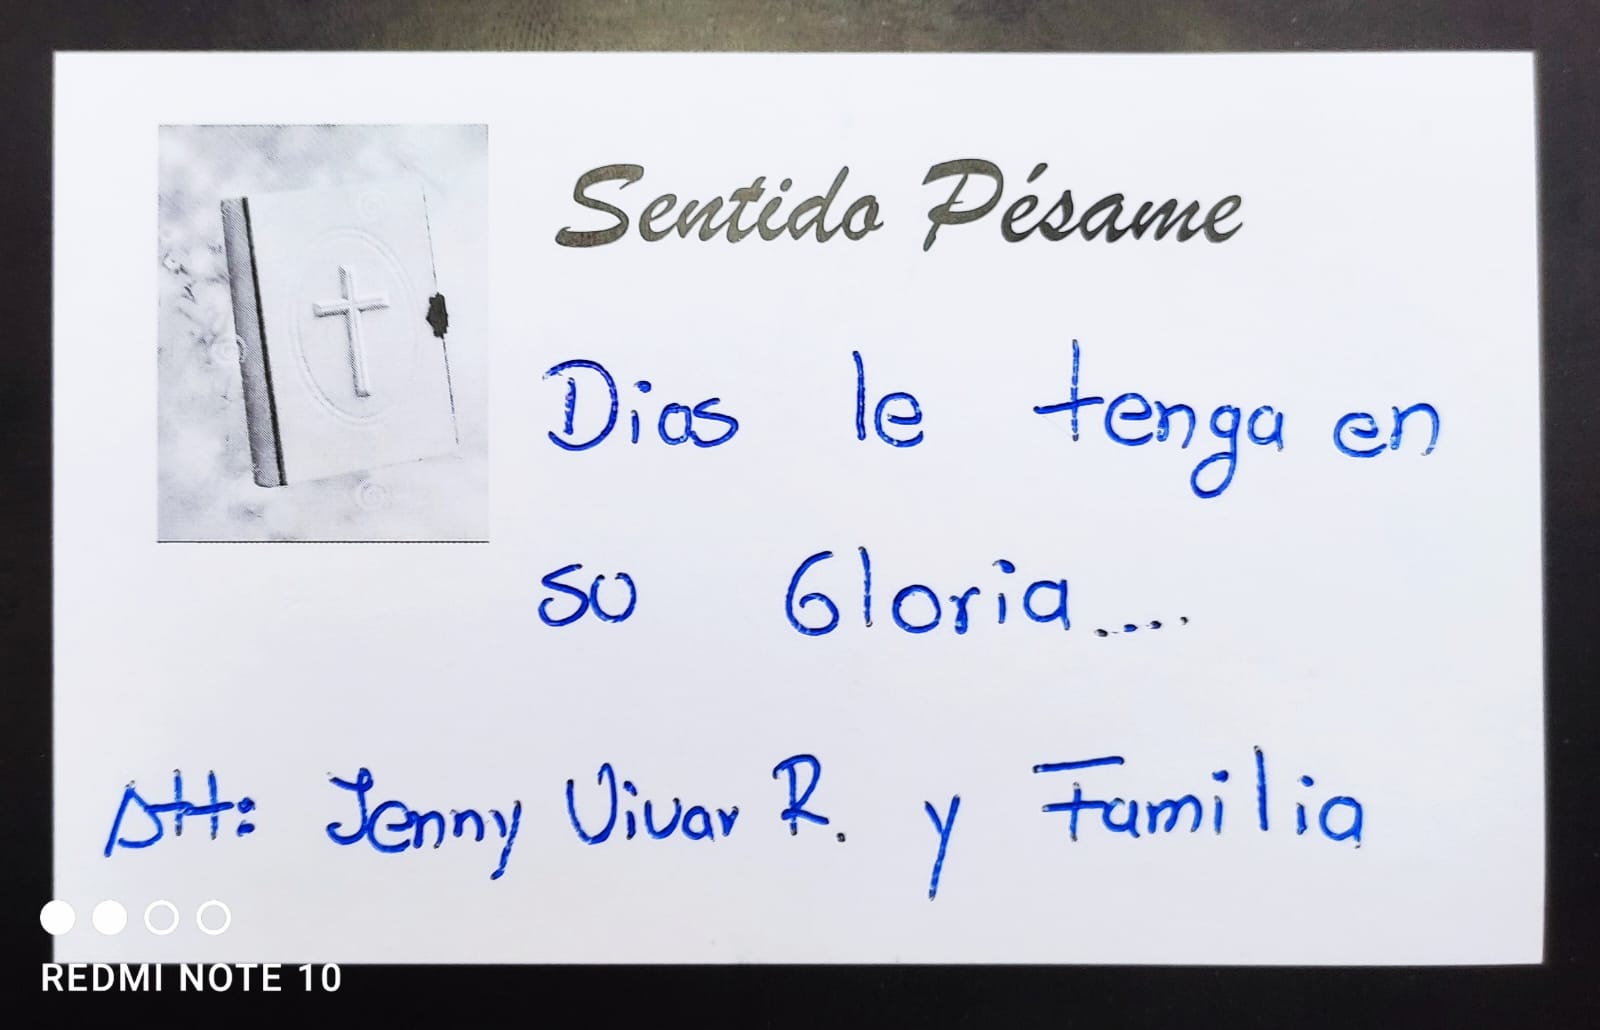 Sentido Pésame
Dios le tenga en
su Gloria....
Att: Jenny Vivar R. y Familia
REDMI NOTE 10